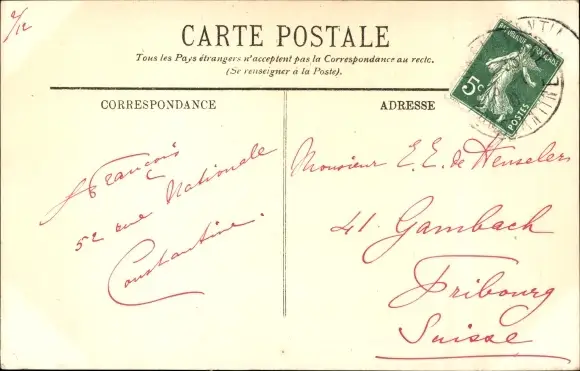 2/12
CARTE POSTALE
Tous les Pays étrangers n'acceptent pas la Correspondance au recto.
(Se renseigner à la Poste).
CORRESPONDANCE
François
52 rue Nationale
Constantine.
ADRESSE
Monsieur E. E. de Henseler
41 Gambach
Fribourg
Suisse
5c
POSTES